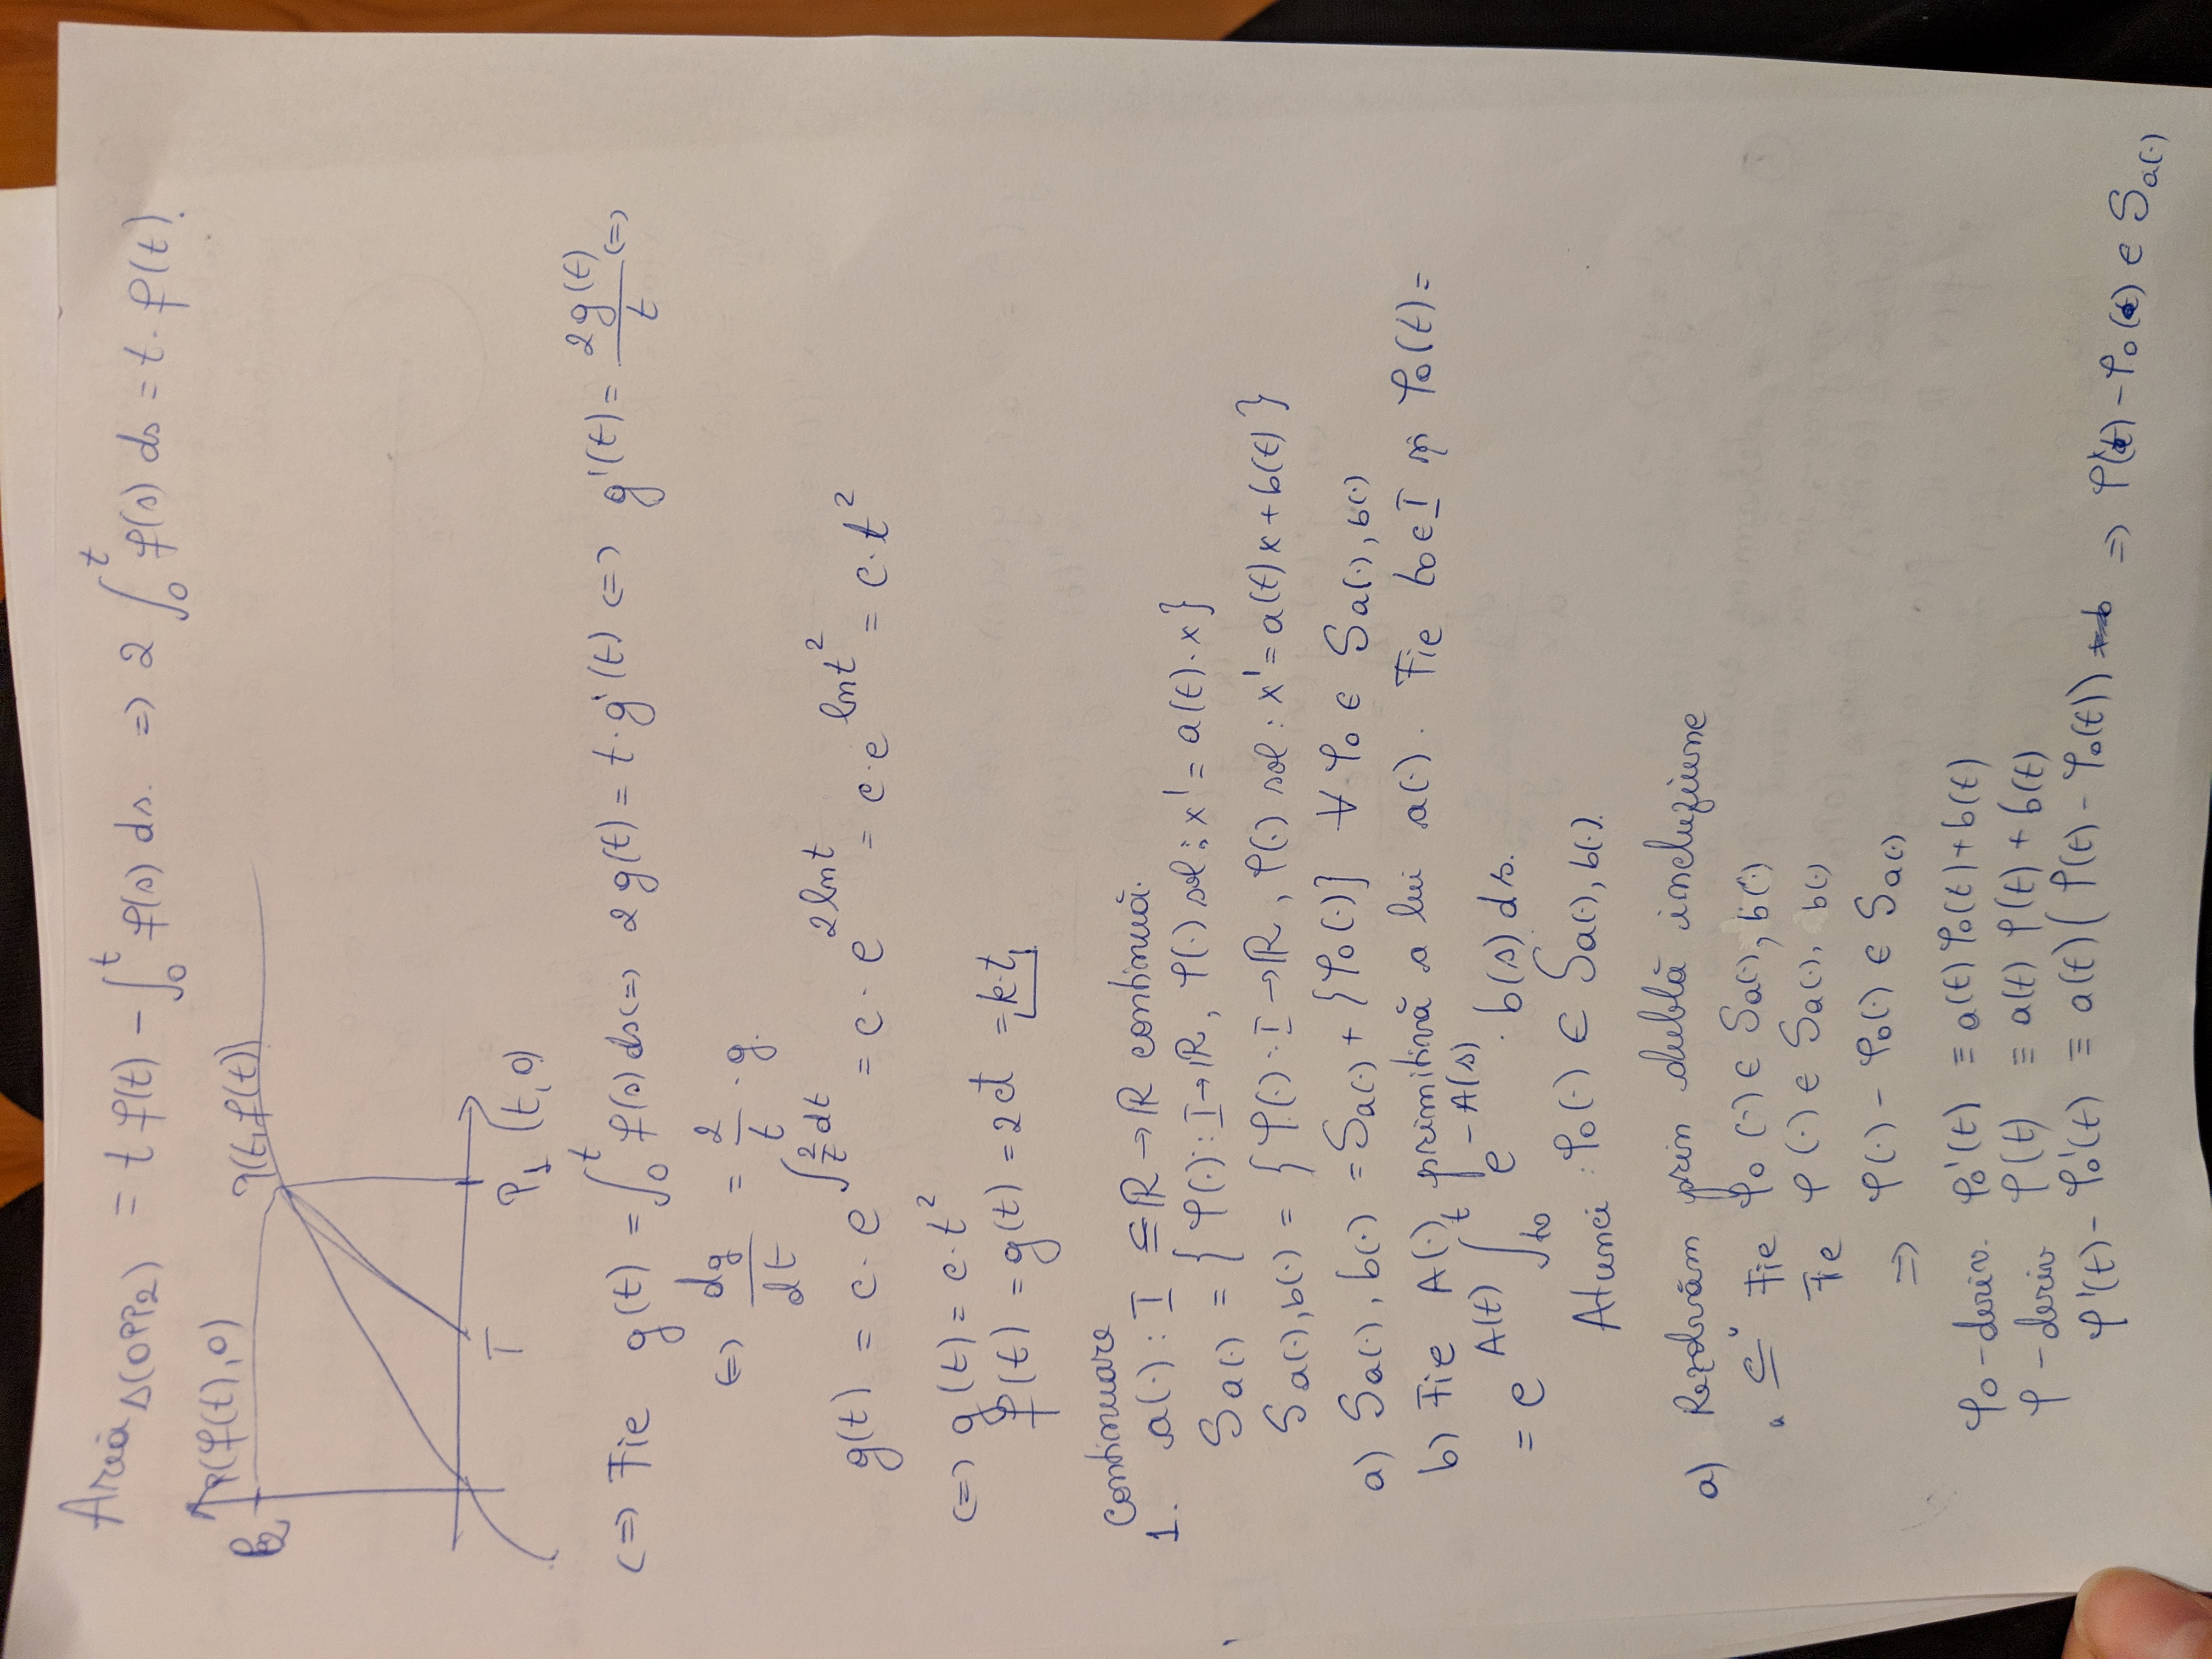 Aria Δ(OPP2) = t f(t) - ∫_0^t f(s) ds. => 2 ∫_0^t f(s) ds = t · f(t).
P(f(t), 0)
P(t, f(t))
P2
T
P1 (t, 0)
<=> Fie g(t) = ∫_0^t f(s) ds <=> 2 g(t) = t · g'(t) <=> g'(t) = 2g(t)/t <=>
<=> dg/dt = 2/t · g.
g(t) = c · e^{∫ 2/t dt} = c · e^{2 ln t} = c · e^{ln t^2} = c · t^2
<=> g(t) = c · t^2
f(t) = g(t) = 2ct = k·t
Continuare
1. a(·) : I ⊆ ℝ → ℝ continuă.
S_{a(·)} = { φ(·) : I → ℝ, φ(·) sol : x' = a(t) · x }
S_{a(·), b(·)} = { φ(·) : I → ℝ, φ(·) sol : x' = a(t) x + b(t) }
a) S_{a(·), b(·)} = S_{a(·)} + {φ0(·)} ∀ φ0 ∈ S_{a(·), b(·)}
b) Fie A(·) primitivă a lui a(·). Fie t0 ∈ I și φ0(t) =
= e^{A(t)} ∫_{t0}^t e^{-A(s)} · b(s) ds.
Atunci : φ0(·) ∈ S_{a(·), b(·)}.
a) Rezolvăm prin dublă incluziune
„⊆" Fie φ0(·) ∈ S_{a(·), b(·)}
Fe φ(·) ∈ S_{a(·), b(·)}
=> φ(·) - φ0(·) ∈ S_{a(·)}
φ0 - deriv. φ0'(t) ≡ a(t) φ0(t) + b(t)
φ - deriv φ(t) ≡ a(t) φ(t) + b(t)
φ'(t) - φ0'(t) ≡ a(t) ( φ(t) - φ0(t)) => φ(·) - φ0(·) ∈ S_{a(·)}